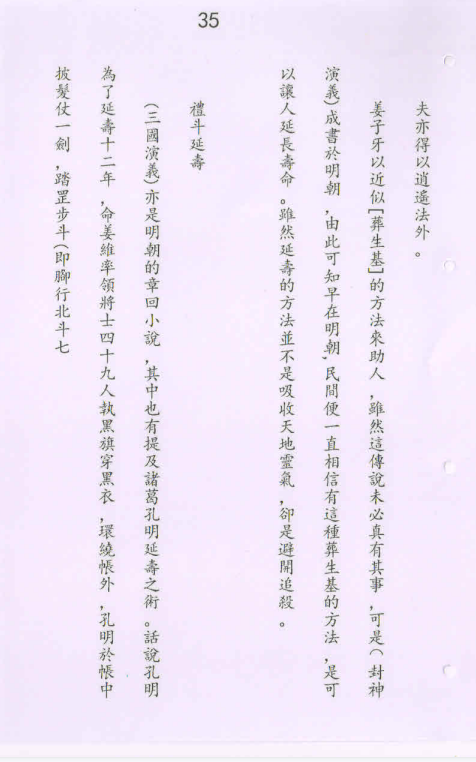 35
夫亦得以逍遙法外。
姜子牙以近似[葬生基]的方法來助人，雖然這傳說未必真有其事，可是(封神
演義)成書於明朝，由此可知早在明朝，民間便一直相信有這種葬生基的方法，是可
以讓人延長壽命。雖然延壽的方法並不是吸收天地靈氣，卻是避開追殺。
禮斗延壽
(三國演義)亦是明朝的章回小說，其中也有提及諸葛孔明延壽之術。話說孔明
為了延壽十二年，命姜維率領將士四十九人執黑旗穿黑衣，環繞帳外，孔明於帳中
披髮仗一劍，踏罡步斗(即腳行北斗七